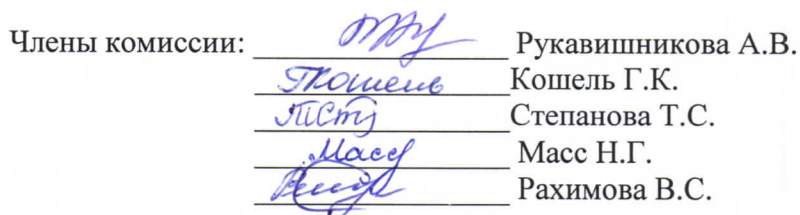 Члены комиссии: Рукавишникова А.В.
Гкошель Кошель Г.К.
ТСт Степанова Т.С.
Масс Масс Н.Г.
Рахимова В.С.